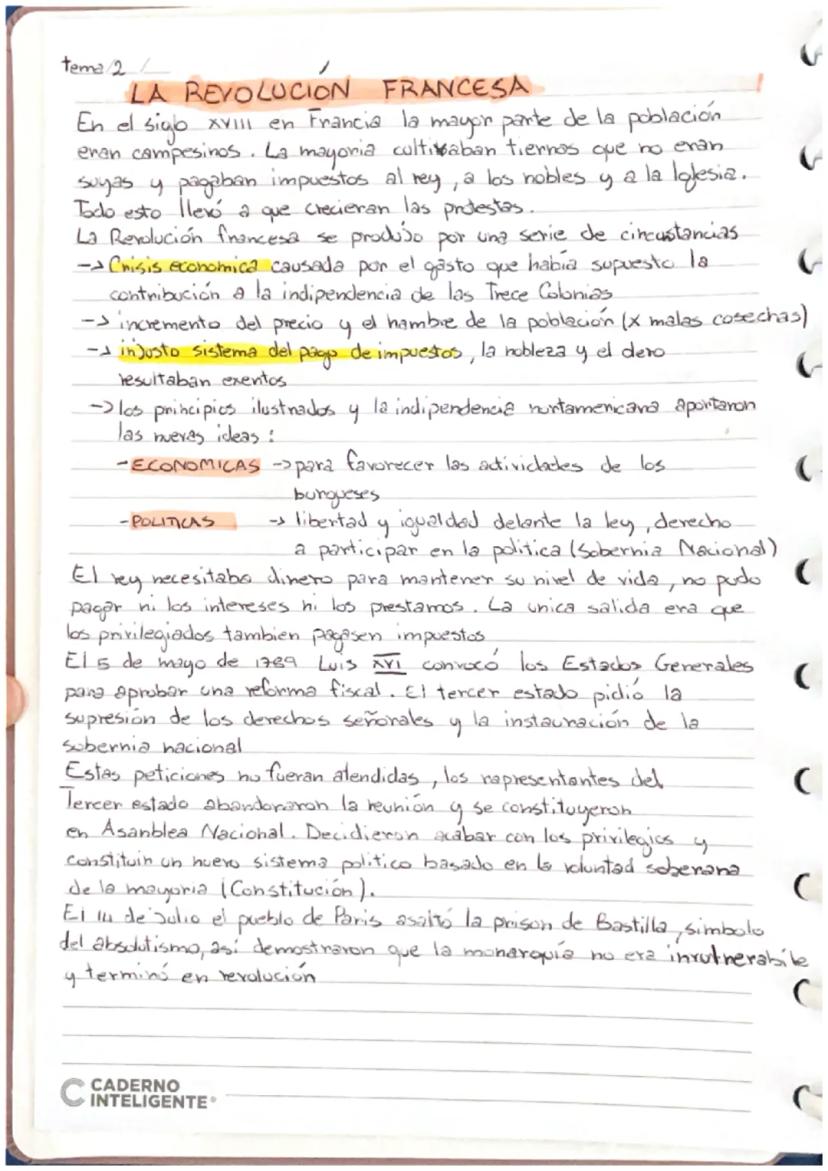 tema 2
LA REVOLUCIÓN FRANCESA
En el siglo XVIII en Francia la mayor parte de la población
eran campesinos. La mayoria cultivaban tierras que no eran
suyas y pagaban impuestos al rey, a los nobles y a la Iglesia.
Todo esto llevó a que crecieran las protestas.
La Revolución francesa se produjo por una serie de circustancias
-> Crisis economica causada por el gasto que había supuesto la
contribución a la indipendencia de las Trece Colonias
-> incremento del precio y el hambre de la población (x malas cosechas)
-> injusto sistema del pago de impuestos, la nobleza y el clero
resultaban exentos
-> los principios ilustrados y la indipendencia nortamericana aportaron
las nuevas ideas:
- ECONOMICAS -> para favorecer las actividades de los
burgueses
- POLITICAS -> libertad y igualdad delante la ley, derecho
a participar en la politica (Sobernia Nacional)
El rey necesitaba dinero para mantener su nivel de vida, no pudo
pagar ni los intereses ni los prestamos. La unica salida era que
los privilegiados tambien pagasen impuestos
El 5 de mayo de 1789 Luis XVI convocó los Estados Generales
para aprobar una reforma fiscal. El tercer estado pidió la
supresión de los derechos señorales y la instauración de la
sobernia nacional
Estas peticiones no fueran atendidas, los rapresentantes del
Tercer estado abandonaron la reunión y se constituyeron
en Asanblea Nacional. Decidieron acabar con los privilegios y
constituir un nuevo sistema politico basado en la voluntad soberana
de la mayoria (Constitución).
El 14 de Julio el pueblo de Paris asaltó la prison de Bastilla, simbolo
del absolutismo, así demostraron que la monarquía no era invulnerabile
y terminó en revolución
CADERNO
INTELIGENTE®